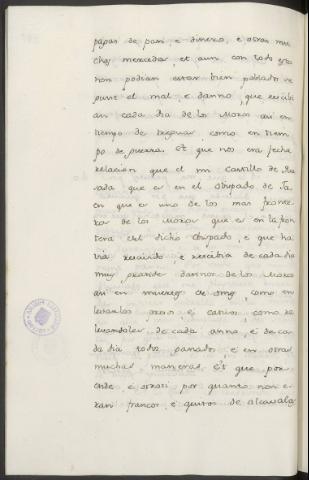 pagas de pan, e dinero, e otras mu
chas mercedes, et aun con todo esto
non podian estar bien poblado se
gunt el mal e danno, que recibi
an cada dia de los Moros asi en
tiempo de treguas como en tiem
po de guerra. Et que nos era fecha
relacion que el mi Castillo de Que
sada que es en el obispado de Ja
en que es uno de los mas fronte
ros de los Moros que es en la fron
tera del dicho obispado, e que ha
via recivido e recebia de cada dia
muy grande dannos de los Moros
asi en muertes de omes, como en
levarlos presos e cativos, como se
levandoles de cada anno, e de ca
da dia todos ganados, e en otras
muchas maneras. Et que por
ende e otrosi por quanto non e
ran francos, e quitos de alcavalas